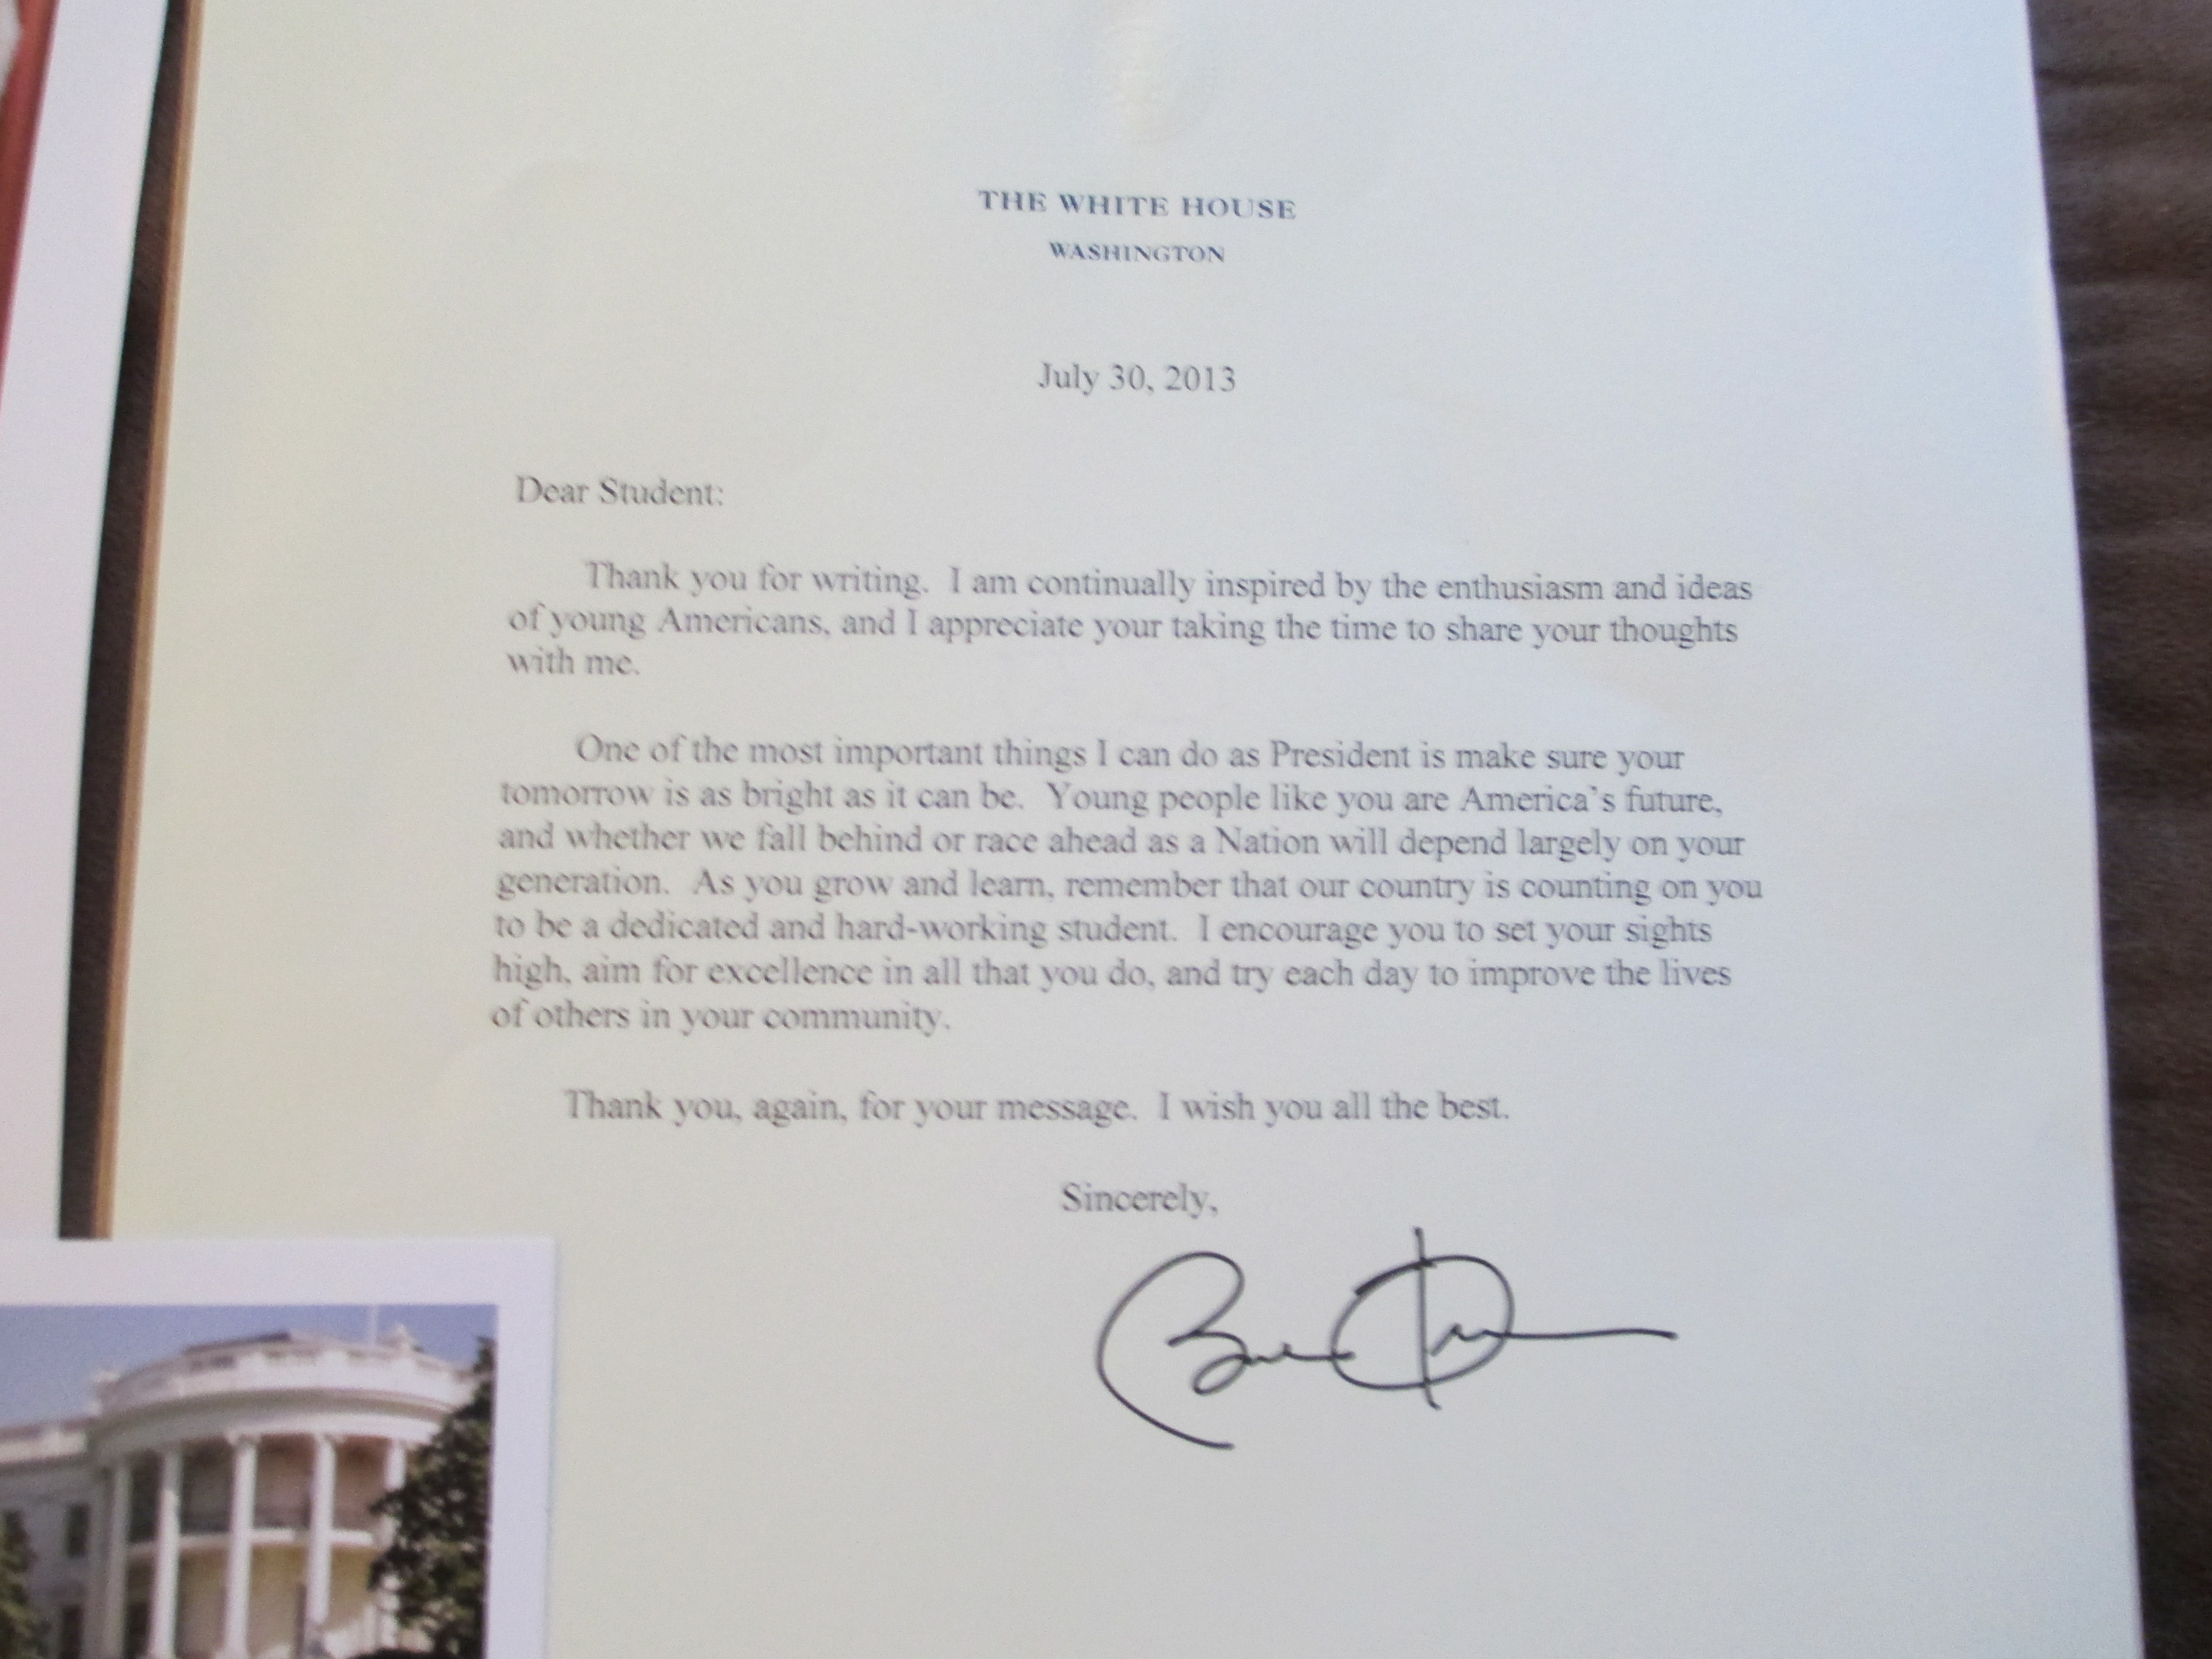 THE WHITE HOUSE
WASHINGTON
July 30, 2013
Dear Student:
Thank you for writing.  I am continually inspired by the enthusiasm and ideas
of young Americans, and I appreciate your taking the time to share your thoughts
with me.
One of the most important things I can do as President is make sure your
tomorrow is as bright as it can be.  Young people like you are America's future,
and whether we fall behind or race ahead as a Nation will depend largely on your
generation.  As you grow and learn, remember that our country is counting on you
to be a dedicated and hard-working student.  I encourage you to set your sights
high, aim for excellence in all that you do, and try each day to improve the lives
of others in your community.
Thank you, again, for your message.  I wish you all the best.
Sincerely,